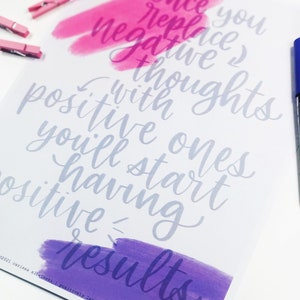 once you
replace
negative
thoughts
with
positive ones
you'll start
having
positive
results